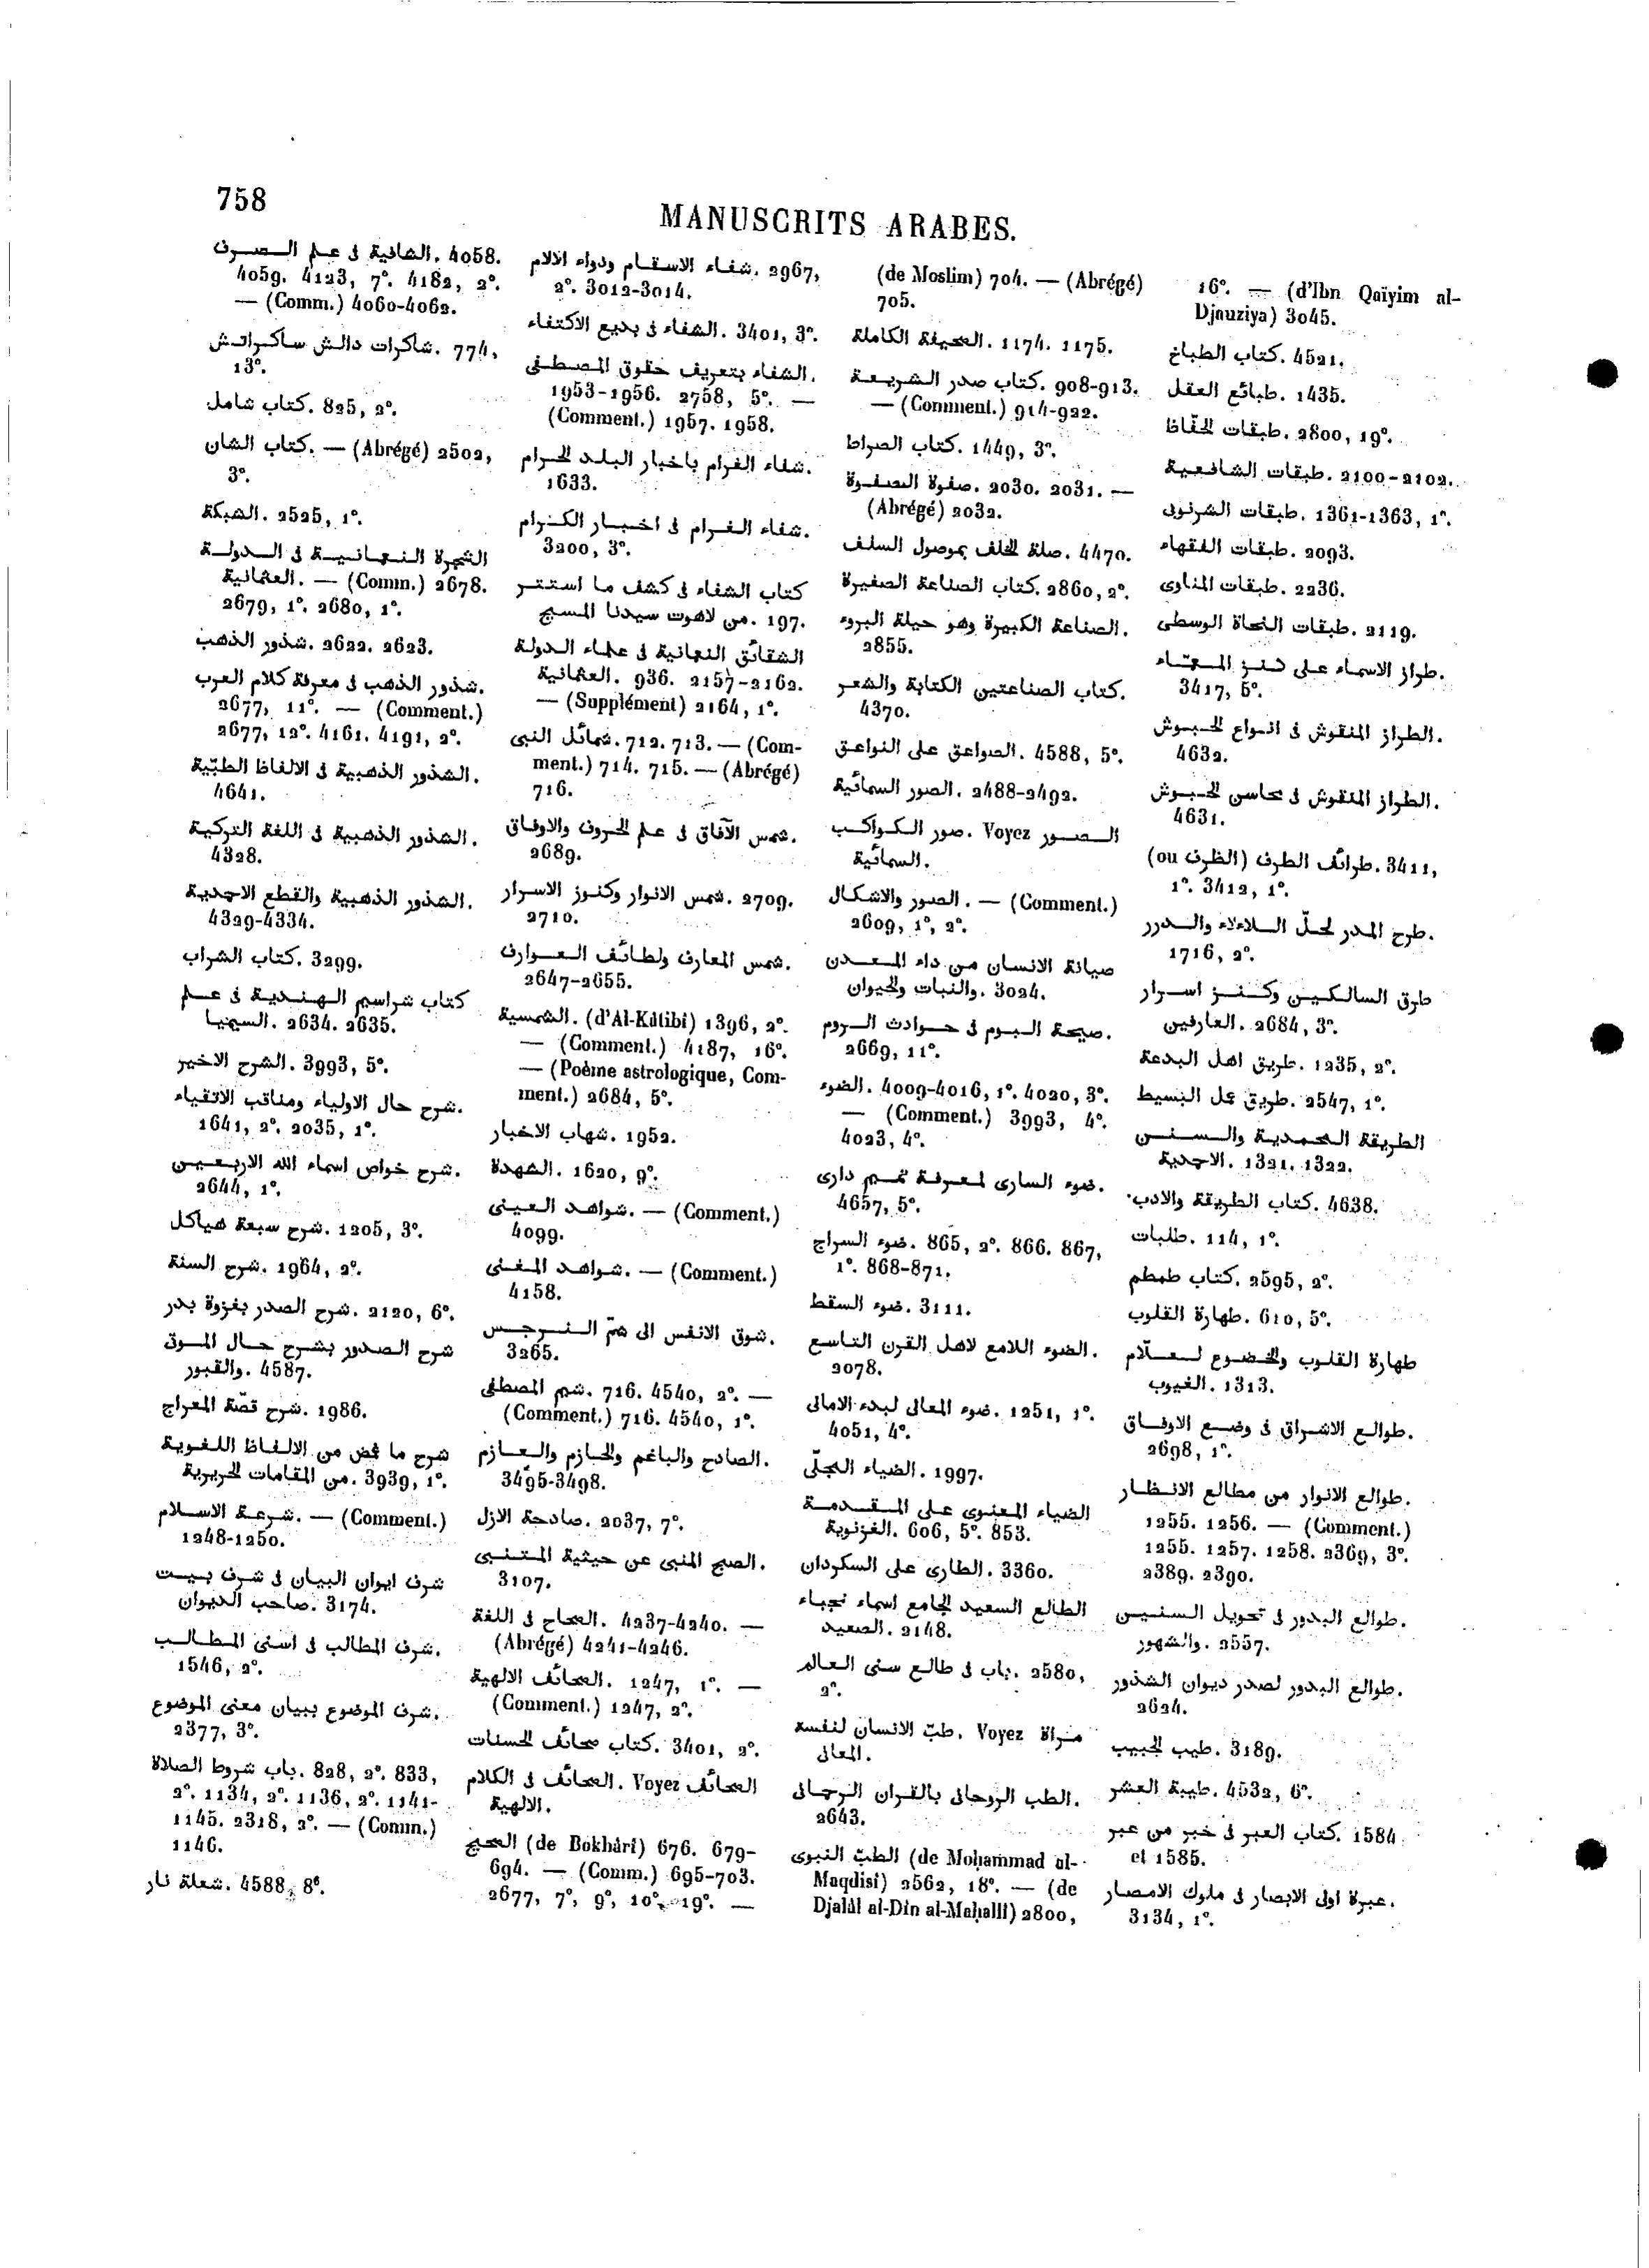 758
MANUSCRITS ARABES.
الشافية فى علم الـصـرف. 4058.
4059. 4123, 7°. 4182, 2°.
— (Comm.) 4060-4062.
شاكرات دالش ساكـراتـش. 774,
13°.
كتاب شامل. 825, 2°.
كتاب الشان. — (Abrégé) 2502,
3°.
الشبكة. 2525, 1°.
الشجرة النـعـمانـيـة فى الـدولـة
العثمانية. — (Comm.) 2678.
2679, 1°. 2680, 1°.
شذور الذهب. 2622. 2623.
شذور الذهب فى معرفة كلام العرب.
2677, 11°. — (Comment.)
2677, 12°. 4161. 4191, 2°.
الشذور الذهبية فى الالفاظ الطبّية.
4641.
الشذور الذهبية فى اللغة التركية.
4328.
الشذور الذهبية والقطع الاحمدية.
4329-4334.
كتاب الشراب. 3299.
كتاب شراسيم الـهـنـديـة فى عـلـم
السيميا. 2634. 2635.
الشرح الاخير. 3993, 5°.
شرح حال الاولياء ومناقب الاتقياء.
1641, 2°. 2035, 1°.
شرح خواص اسماء الله الاربـعـيـن.
2644, 1°.
شرح سبعة هياكل. 1205, 3°.
شرح السنة. 1964, 2°.
شرح الصدر بغزوة بدر. 2120, 6°.
شرح الصدور بشرح حـال المـوتى
والقبور. 4587.
شرح قصّة المعراج. 1986.
شرح ما غمض من الالـفـاظ اللـغـوية
من المقامات الحريرية. 3939, 1°.
شرعـة الاسـلام. — (Comment.)
1248-1250.
شرف ايوان البيان فى شرف بـيـت
صاحب الديوان. 3174.
شرف المطالب فى اسنى المـطـالـب.
1546, 2°.
شرف الموضوع ببيان معنى الموضوع.
2377, 3°.
باب شروط الصلاة. 828, 2°. 833,
2°. 1134, 2°. 1136, 2°. 1141-
1145. 2318, 2°. — (Comm.)
1146.
شعلة نار. 4588, 8°.
شفـاء الاسـقـام ودواء الآلام. 2967,
2°. 3012-3014.
الشفاء فى بديع الاكتفاء. 3401, 3°.
الشفاء بتعريف حقوق المـصـطـفى.
1953-1956. 2758, 5°. —
(Comment.) 1957. 1958.
شفاء الغرام باخبار البـلـد الحـرام.
1633.
شفاء الغـرام فى اخـبـار الكـرام.
3200, 3°.
كتاب الشفاء فى كشف ما استـتـر
من لاهوت سيدنا المسيح. 197.
الشقائق النعمانية فى علماء الـدولة
العثمانية. 936. 2157-2162.
— (Supplément) 2164, 1°.
شمائل النبى. 712. 713. — (Com-
ment.) 714. 715. — (Abrégé)
716.
شمس الآفاق فى علم الحروف والاوفاق.
2689.
شمس الانوار وكنوز الاسرار. 2709.
2710.
شمس المعارف ولطائف الـعـوارف.
2647-2655.
الشمسية. (d'Al-Kâtibî) 1396, 2°.
— (Comment.) 4187, 16°.
— (Poème astrologique, Com-
ment.) 2684, 5°.
شهاب الاخبار. 1952.
الشهدة. 1620, 9°.
شواهد العيـنى. — (Comment.)
4099.
شواهد المـغـنى. — (Comment.)
4158.
شوق الانفس الى همّ الـنـرجـس.
3265.
شيم المصطفى. 716. 4540, 2°. —
(Comment.) 716. 4540, 1°.
الصادح والباغم والحـازم والـعـازم.
3495-3498.
صادحة الازل. 2037, 7°.
الصبح المنبى عن حيثية المـتـنـبى.
3107.
الصحاح فى اللغة. 4237-4240. —
(Abrégé) 4241-4246.
الصحائف الالهية. 1247, 1°. —
(Comment.) 1247, 2°.
كتاب صحائف الحسنات. 3401, 2°.
الصحائف فى الكلام. Voyez الصحائف
الالهية.
الصحيح (de Bokhârî) 676. 679-
694. — (Comm.) 695-703.
2677, 7°, 9°, 10°, 19°. —
(de Moslim) 704. — (Abrégé)
705.
الصحيفة الكاملة. 1174. 1175.
كتاب صدر الشريـعـة. 908-913.
— (Comment.) 914-922.
كتاب الصراط. 1449, 3°.
صفوة الصـفـوة. 2030. 2031. —
(Abrégé) 2032.
صلة الخلف بموصول السلف. 4470.
كتاب الصناعة الصغيرة. 2860, 2°.
الصناعة الكبيرة وهو حيلة البروء.
2855.
كتاب الصناعتين الكتابة والشعر.
4370.
الصواعق على النواعق. 4588, 5°.
الصور السمائية. 2488-2492.
صور الـكـواكـب. Voyez الـصـور
السمائية.
الصور والاشكال. — (Comment.)
2609, 1°, 2°.
صيانة الانسان من داء المـعـدن
والنبات والحيوان. 3024.
صيحة الـبـوم فى حـوادث الـروم.
2669, 11°.
الضوء. 4009-4016, 1°. 4020, 3°.
— (Comment.) 3993, 4°.
4023, 4°.
ضوء السارى لمعـرفـة تمـيـم دارى.
4657, 5°.
ضوء السراج. 865, 2°. 866. 867,
1°. 868-871.
ضوء السقط. 3111.
الضوء اللامع لاهل القرن التاسع.
2078.
ضوء المعالى لبدء الامالى. 1251, 1°.
4051, 4°.
الضياء المجلّى. 1997.
الضياء المعنوى على المـقـدمـة
الغزنوية. 606, 5°. 853.
الطارى على السكردان. 3360.
الطالع السعيد الجامع اسماء نجباء
الصعيد. 2148.
باب فى طالع سنى العالم. 2580,
2°.
طبّ الانسان لنفسه. Voyez مـرآة
المعانى.
الطب الروحانى بالقران الرحمانى.
2643.
الطبّ النبوى (de Mohammad al-
Maqdisî) 2562, 18°. — (de
Djalâl al-Dîn al-Maḥallî) 2800,
16°. — (d'Ibn Qaïyim al-
Djauziya) 3045.
كتاب الطباخ. 4521.
طبائع العقل. 1435.
طبقات الحفّاظ. 2800, 19°.
طبقات الشافـعـيـة. 2100-2102.
طبقات الشرنوبى. 1361-1363, 1°.
طبقات الفقهاء. 2093.
طبقات المناوى. 2236.
طبقات النحاة الوسطى. 2119.
طراز الاسماء على كنـز المـعـمّـاء.
3417, 5°.
الطراز المنقوش فى انـواع الحـبـوش.
4632.
الطراز المنقوش فى محاسن الحـبـوش.
4631.
طرائف الطرف (ou الظرف). 3411,
1°. 3412, 1°.
طرح المدر لحلّ الـلاءلاء والـدرر.
1716, 2°.
طرق السالكيـن وكـنـز اسـرار
العارفين. 2684, 3°.
طريق اهل البدعة. 1235, 2°.
طريق عمل البسيط. 2547, 1°.
الطريقة المـحـمـديـة والـسـنـن
الاحمدية. 1321. 1322.
كتاب الطريقة والادب. 4638.
طلبات. 114, 1°.
كتاب طمطم. 2595, 2°.
طهارة القلوب. 610, 5°.
طهارة القلوب والخـضـوع لـعـلّام
الغيوب. 1313.
طوالـع الاشـراق فى وضـع الاوفـاق.
2698, 1°.
طوالع الانوار من مطالع الانـظـار.
1255. 1256. — (Comment.)
1255. 1257. 1258. 2369, 3°.
2389. 2390.
طوالع البدور فى تحويل السـنـيـن
والشهور. 2557.
طوالع البدور لصدر ديوان الشذور.
2624.
طيب الحبيب. 3189.
طيبة العشر. 4532, 6°.
كتاب العبر فى خبر من عبر. 1584
et 1585.
عبرة اولى الابصار فى ملوك الامصار.
3134, 1°.